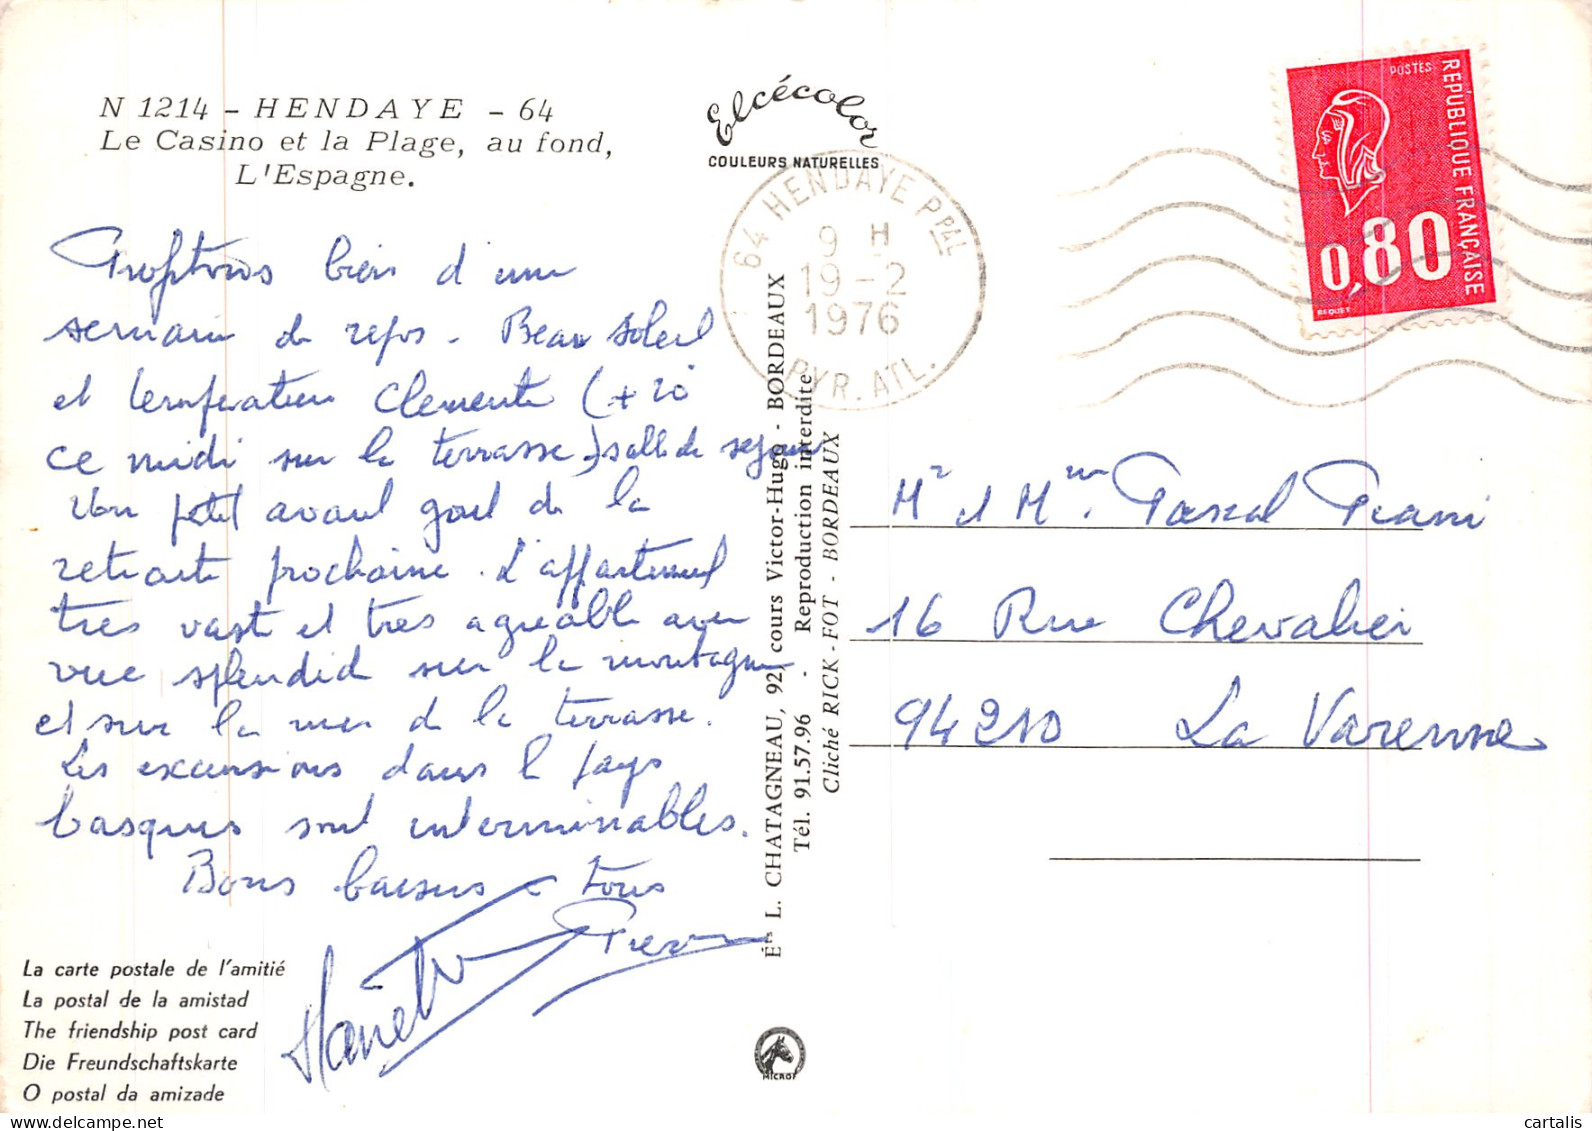 N 1214 - HENDAYE - 64
Le Casino et la Plage, au fond,
L'Espagne.
Elcécolor
COULEURS NATURELLES
64 HENDAYE PPAL
9 H
19-2
1976
PYR. ATL.
POSTES
RÉPUBLIQUE FRANÇAISE
0,80
BEQUET
Profitons bien d'une
semaine de repos - Beau soleil
et température clemente (+20°
ce midi sur la terrasse) salle de sejour
Un petit avant gout de la
retraite prochaine. L'appartement
très vaste et très agréable avec
vue splendide sur la montagne
et sur la mer de la terrasse.
Les excursions dans le pays
basques sont interminables.
Bons baisers à tous
Pierre
Mr et Mme Pascal
16 Rue Chevalier
94210 La Varenne
Éts L. CHATAGNEAU, 92, cours Victor-Hugo - BORDEAUX
Tél. 91.57.96 - Reproduction interdite
Cliché RICK-FOT - BORDEAUX
La carte postale de l'amitié
La postal de la amistad
The friendship post card
Die Freundschaftskarte
O postal da amizade
MICROF
cartalis